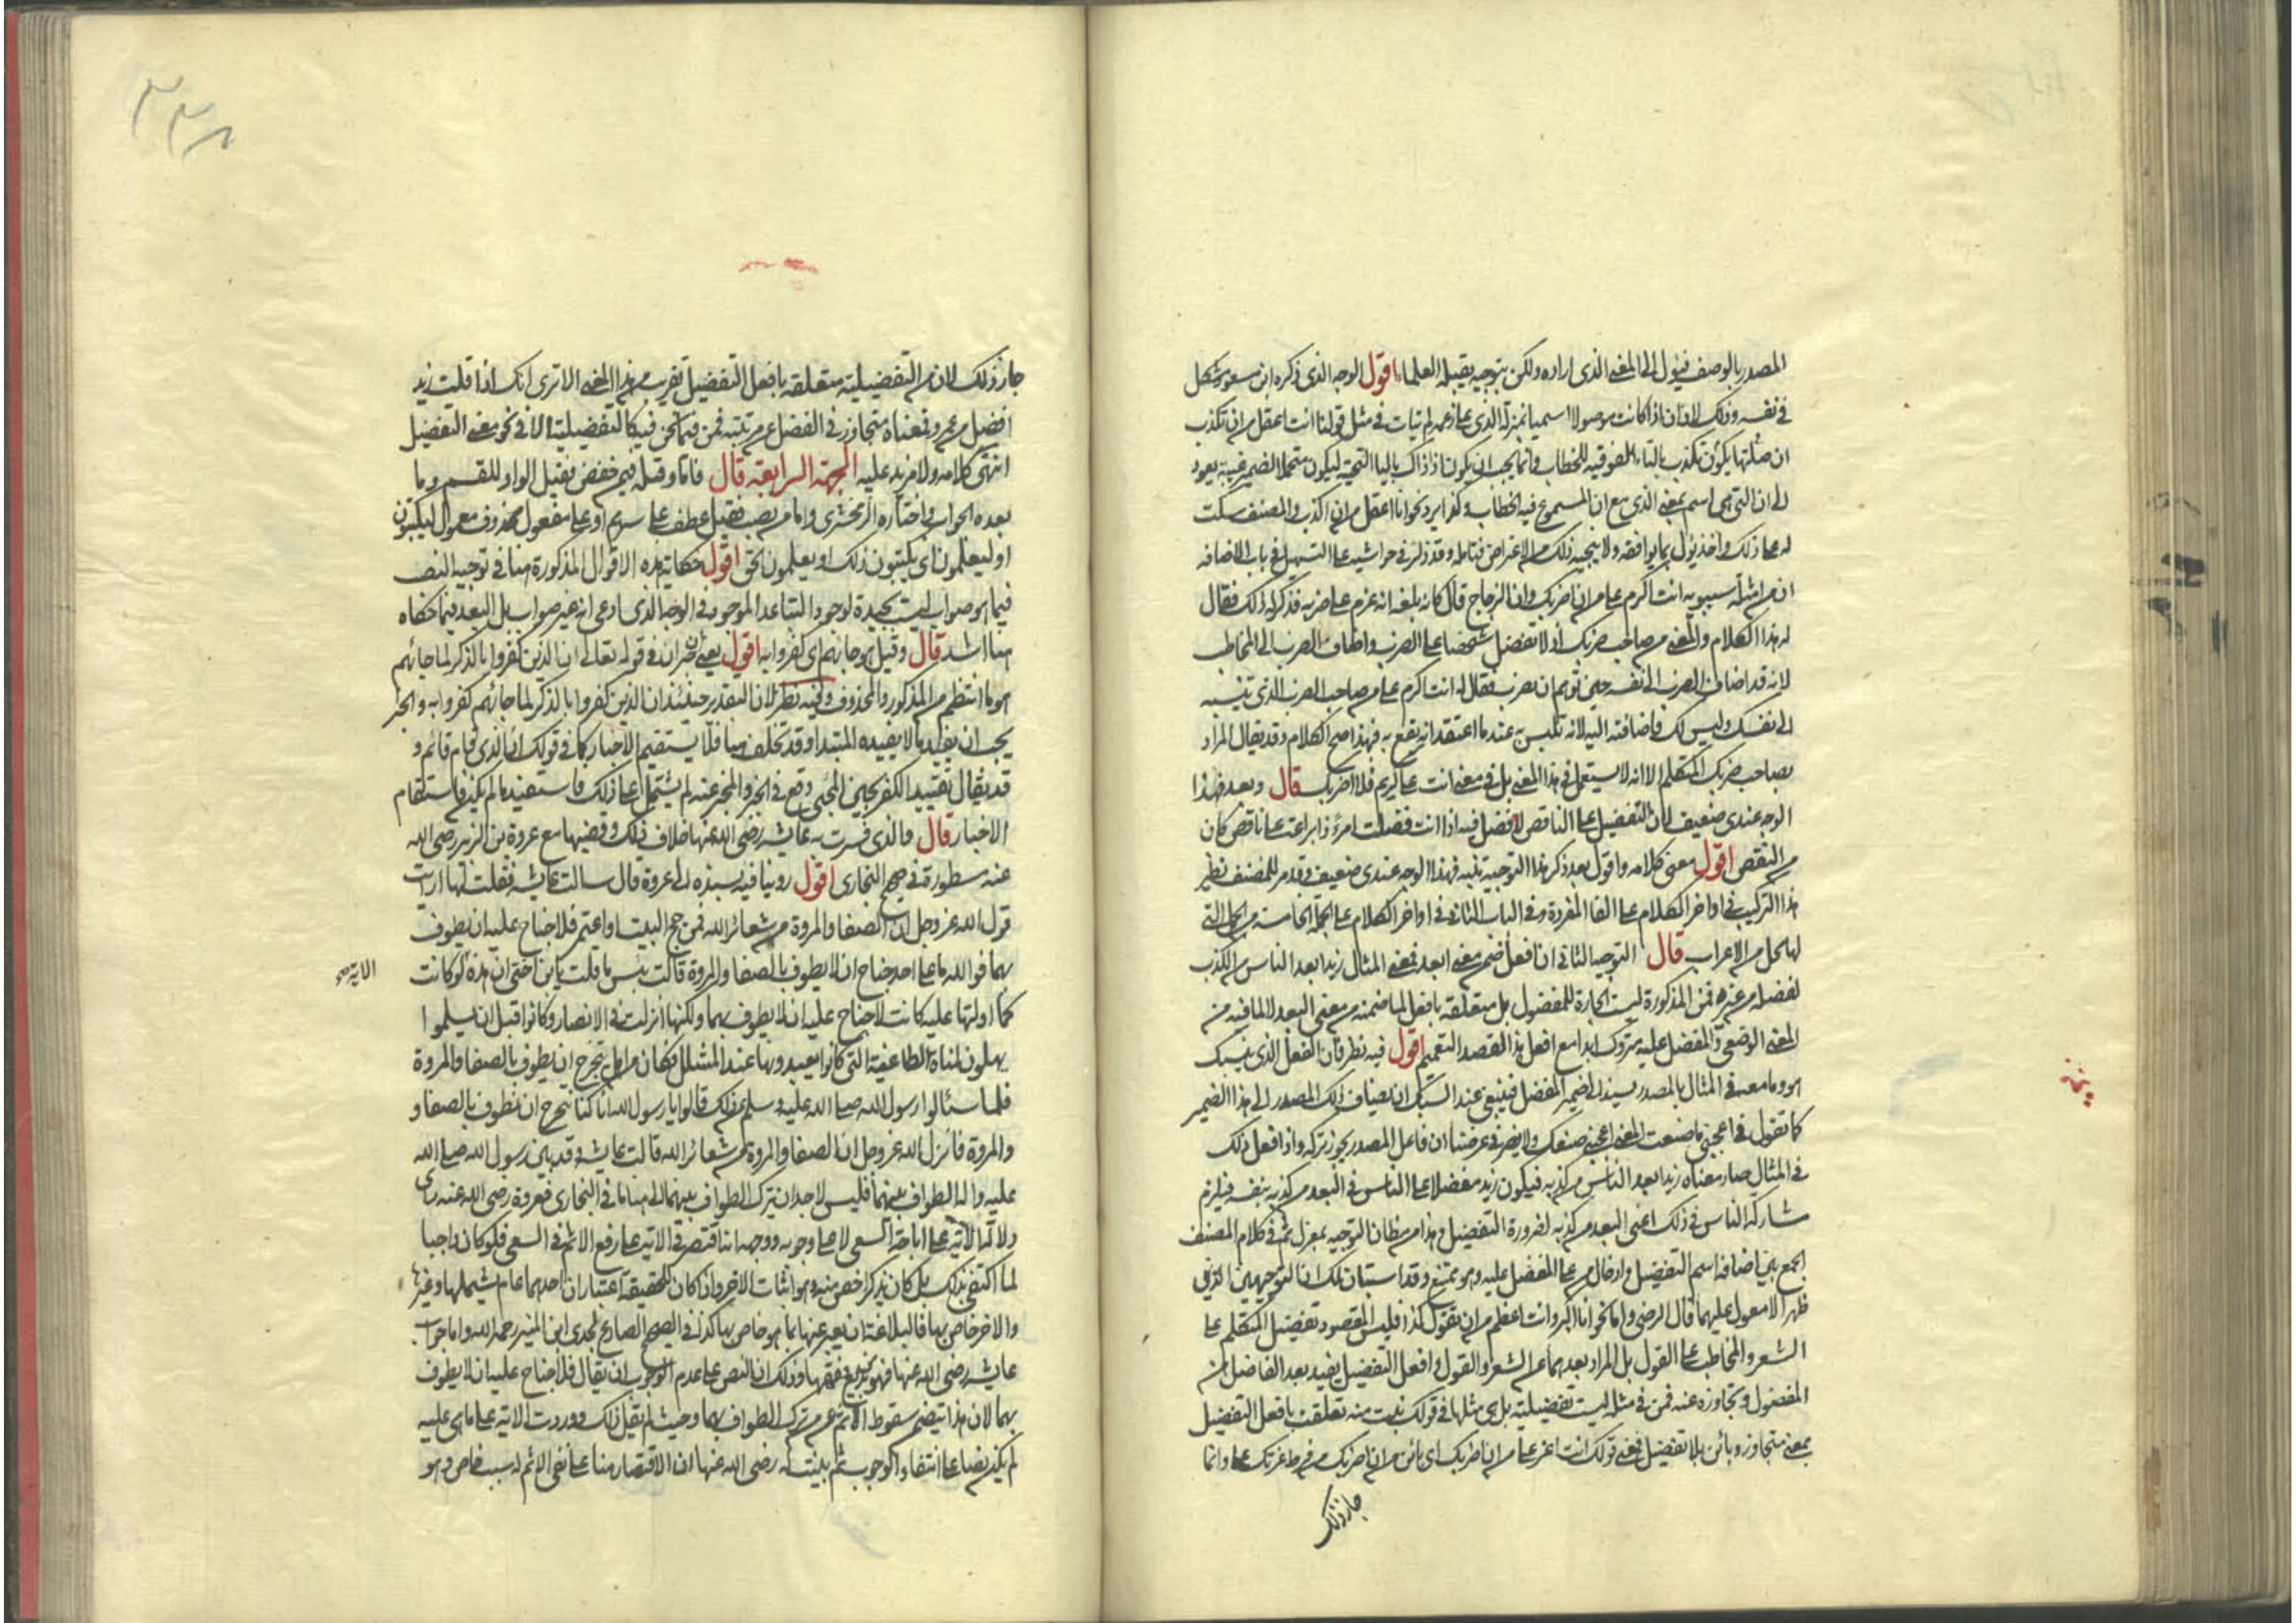 المصدر بالوصف فيؤل الى المعنى الذى اراده ولكن بتوجيه يقبله العلماء اقول الوجه الذى ذكره ابن مسعود مشكل
فى نفسه وذلك لان ان اذا كانت موصولا اسميا بمنزلة الذى على زعمه لم يتأت فى مثل قولنا انت اعقل من ان تكذب
ان صلتها يكون تكذب بالتاء الفوقيه للخطاب وانما يجب ان يكون اذ ذاك بالياء التحتية ليكون متحملا لضمير غيبة يعود
الى ان التى هى اسم بمعنى الذى مع ان المسموع فيه الخطاب وكذا يرد نحو انا اعقل من ان اكذب والمصنف سكت
له على ذلك واخذ يؤل بما يوافقه ولا ينجيه ذلك من الاعتراض فتامله وقد ذكر فى حواشيه على التسهيل فى باب الاضافه
ان من امثلة سيبويه انت اكرم على من ان اضربك وان الزجاج قال كانه بلغه انه عزم على ضربه فذكر له ذلك فقال
له هذا الكلام والمعنى من صاحب ضربك اذ لا تفضل شخصا على الضرب واضاف الضرب الى المخاطب
لانه قد اضاف الضرب الى نفسه حين توهم ان يضرب فقال له انت اكرم على من صاحب الضرب الذى تنسبه
الى نفسك وليس لك فاضافته اليه لانه تلبس به عند ما اعتقد انه يقع به فهذا صح الكلام وقد يقال المراد
بصاحب ضربك المتكلم الا انه لا يستعمل فى هذا المعنى بل فى معنى انت على كريم فلا اضربك قال وبعد فهذا
الوجه عندى ضعيف لان التفضيل على الناقص لا فضل فيه اذا انت فضلت امرءا ذا براعة على ناقص كان
من النقص اقول معنى كلامه واقول بعد ذكر هذا التوجيه تنبه فهذا الوجه عندى ضعيف وقد مر للمصنف نظير
هذا التركيب فى اواخر الكلام على الفا المفردة وفى الباب الثانى فى اواخر الكلام على الجملة الخامسة من الجمل التى
لها محل من الاعراب قال التوجيه الثانى ان افعل ضمن معنى ابعد فمعنى المثال زيد ابعد الناس من الكذب
لفضله من غيره فمن المذكورة ليست الجارة للمفضول بل متعلقة بافعل لما ضمنه من معنى البعد لا لما فيه من
المعنى الوضعى والمفضل عليه متروك ابدا مع افعل هذا لقصد التعميم اقول فيه نظر فان الفعل الذى ينسبك
هو وما معه فى المثال بالمصدر يسند الى ضمير المفضل فينبغى عند السبك ان يضاف ذلك المصدر الى هذا الضمير
كما تقول فى اعجبنى ما صنعت المعنى اعجبنى صنعك ولا يضر فى غرضنا ان فاعل المصدر يجوز تركه واذا فعل ذلك
فى المثال صار معناه زيد ابعد الناس من كذبه فيكون زيد مفضلا على الناس فى البعد من كذبه بنفسه فيلزم
مشاركة الناس فى ذلك اعنى البعد من كذبه لضرورة التفضيل وهذا من مظان التوجيه بمعزل ثم فى كلام المصنف
الجمع بين اضافة اسم التفضيل وادخال من على المفضل عليه وهو ممتنع وقد استبان لك ان التوجيهين اللذين
ظهرا لا معول عليهما قال الرضى واما نحو انا اكبر وانت اعظم من ان تقول كذا فليس المقصود تفضيل المتكلم على
الشعر والمخاطب على القول بل المراد بعدهما عن الشعر والقول وافعل التفضيل يفيد بعد الفاضل من
المفضول وتجاوزه عنه فمن فى مثله ليست تفضيلية بل هى مثلها فى قولك بنت منه تعلقت بافعل التفضيل
بمعنى متجاوز وبائن بلا تفضيل فمعنى قولك انت اعز على من ان اضربك اى بائن من ان اضربك من فرط عزتك على وانما
جاز ذلك
٣٣٨
جاز ذلك لان من التفضيلية متعلقه بافعل التفضيل بقريب من هذا المعنى الا ترى انك اذا قلت زيد
افضل من عمرو فمعناه متجاوز فى الفضل عن مرتبته فمن فيما نحن فيه كالتفضيلية الا فى نحو معنى التفضيل
انتهى كلامه ولا مزيد عليه الجهة الرابعة قال فاما وقيله فيمن خفض فقيل الواو للقسم وما
بعده الجواب واختاره الزمخشرى واما من نصب فقيل عطف على سرهم او على مفعول محذوف معمول ليكتبون
او ليعلمون اى يكتبون ذلك او يعلمون الحق اقول حكاية هذه الاقوال المذكورة هنا فى توجيه النصب
فيما هو صواب ليست بجيدة لوجود التباعد الموجود فى الوجه الذى ادعى انه غير صواب بل البعد فيما حكاه
هنا اشد قال وقيل هو جائهم اى كفروا به اقول يعنى خبر ان فى قوله تعالى ان الذين كفروا بالذكر لما جائهم
هو ما انتظم من المذكور والمحذوف وفيه نظر لان التقدير حينئذ ان الذين كفروا بالذكر لما جائهم كفروا به والخبر
يجب ان يفيد ما لا يفيده المبتدا وقد تخلف هنا فلا يستقيم الاخبار كما فى قولك ان الذى قام قائم و
قد يقال تقييد الكفر بحين المجى وقع فى الخبر والمخبر عنه لم يشتمل على ذلك فاستفيد ما لم يكن فاستقام
الاخبار قال والذى فسرت به عايشه رضى الله عنها خلاف ذلك وقضيتها مع عروة بن الزبير رضى الله
عنه مسطورة فى صحيح البخارى اقول روينا فيه بسنده الى عروة قال سالت عايشه فقلت لها ارايت
قول الله عز وجل ان الصفا والمروة من شعائر الله فمن حج البيت او اعتمر فلا جناح عليه ان يطوف
بهما فوالله ما على احد جناح ان لا يطوف بالصفا والمروة قالت بئس ما قلت يا بن اختى ان هذه لو كانت
الاية صح
كما اولتها عليه كانت لا جناح عليه ان لا يطوف بهما ولكنها انزلت فى الانصار وكانوا قبل ان يسلموا
يهلون لمناة الطاغية التى كانوا يعبدونها عند المشلل فكان من اهل يتحرج ان يطوف بالصفا والمروة
فلما سئالوا رسول الله صلى الله عليه وسلم عن ذلك قالوا يا رسول الله انا كنا نتحرج ان نطوف بالصفا و
والمروة فانزل الله عز وجل ان الصفا والمروة من شعائر الله قالت عايشه وقد بين رسول الله صلى الله
عليه واله الطواف بينهما فليس لاحد ان يترك الطواف بينهما الى هنا ما فى البخارى فعروة رضى الله عنه راى
دلالة الاية على اباحة السعى لا على وجوبه ووجهه انه اقتصر فى الاية على رفع الاثم فى السعى فلو كان واجبا
لما اكتفى بذلك بل كان يذكر اخص منه وهو اثبات الاجر واذا كان للحقيقة اعتباران احدهما عام يشملها وغيرها
والاخر خاص بها فالبلاغة ان يعبر عنها بما هو خاص بها كذا فى الصحيح الصادع لجدى ابن المنير رحمه الله واما جواب
عايشه رضى الله عنها فهو من بديع فقهها وذلك ان النص على عدم الوجوب ان يقال فلا جناح عليه ان لا يطوف
بهما لان هذا يتضمن سقوط الاثم عن من ترك الطواف بهما وحيث لم يقل ذلك ووردت الاية على ما هى عليه
لم يكن نصا على انتفاء الوجوب ثم بينت له رضى الله عنها ان الاقتصار هنا على نفى الاثم له سبب خاص وهو